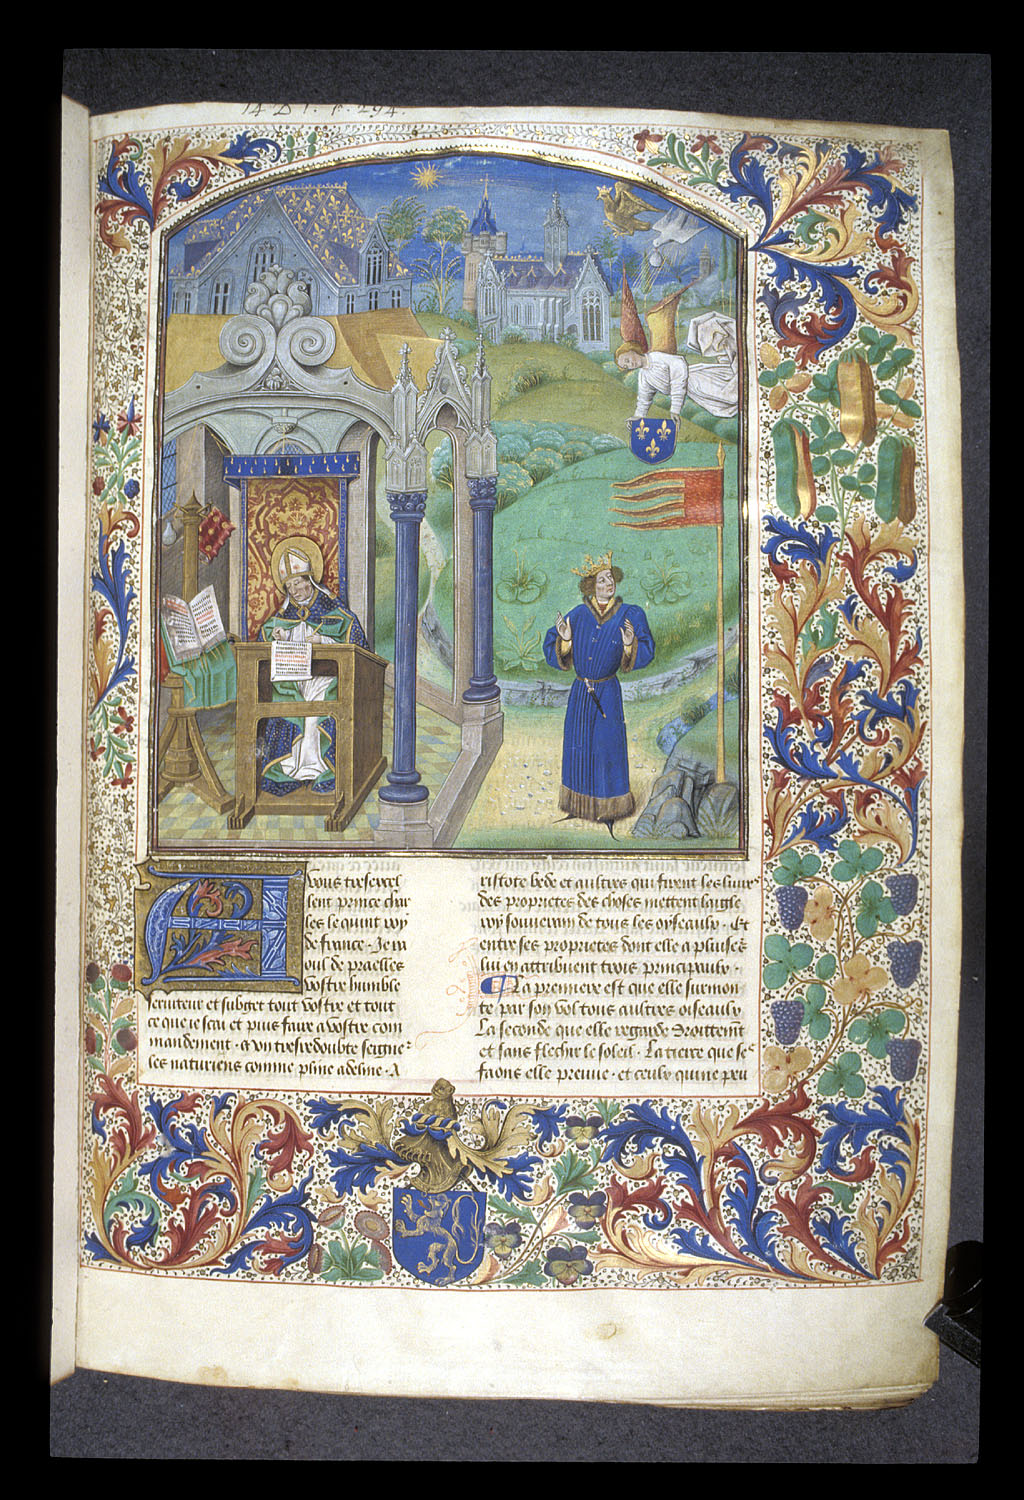 14 D I. f. 294.
A vous tresexcel
lent prince char
les le quint roy
de france · Je ra
oul de praelles
vostre humble
seruiteur et subget tout vostre et tout
ce que ie scai et puis faire a vostre com
mandement · a vn tresredoubte seigneur
les naturiens comme pline adeline · A
ristote bede et aultres qui firent les liures
des proprietes des choses mettent laigle
roy souuerain de tous les oyseaulx · Et
entre ses proprietes dont elle a pluiseurs
lui en attribuent trois principaulx ·
La premiere est que elle surmon
te par son vol tous aultres oiseaulx
La seconde que elle regarde droittement
et sans flechir le soleil · La tierce que ses
faons elle preuue · et ceulx qui ne peu